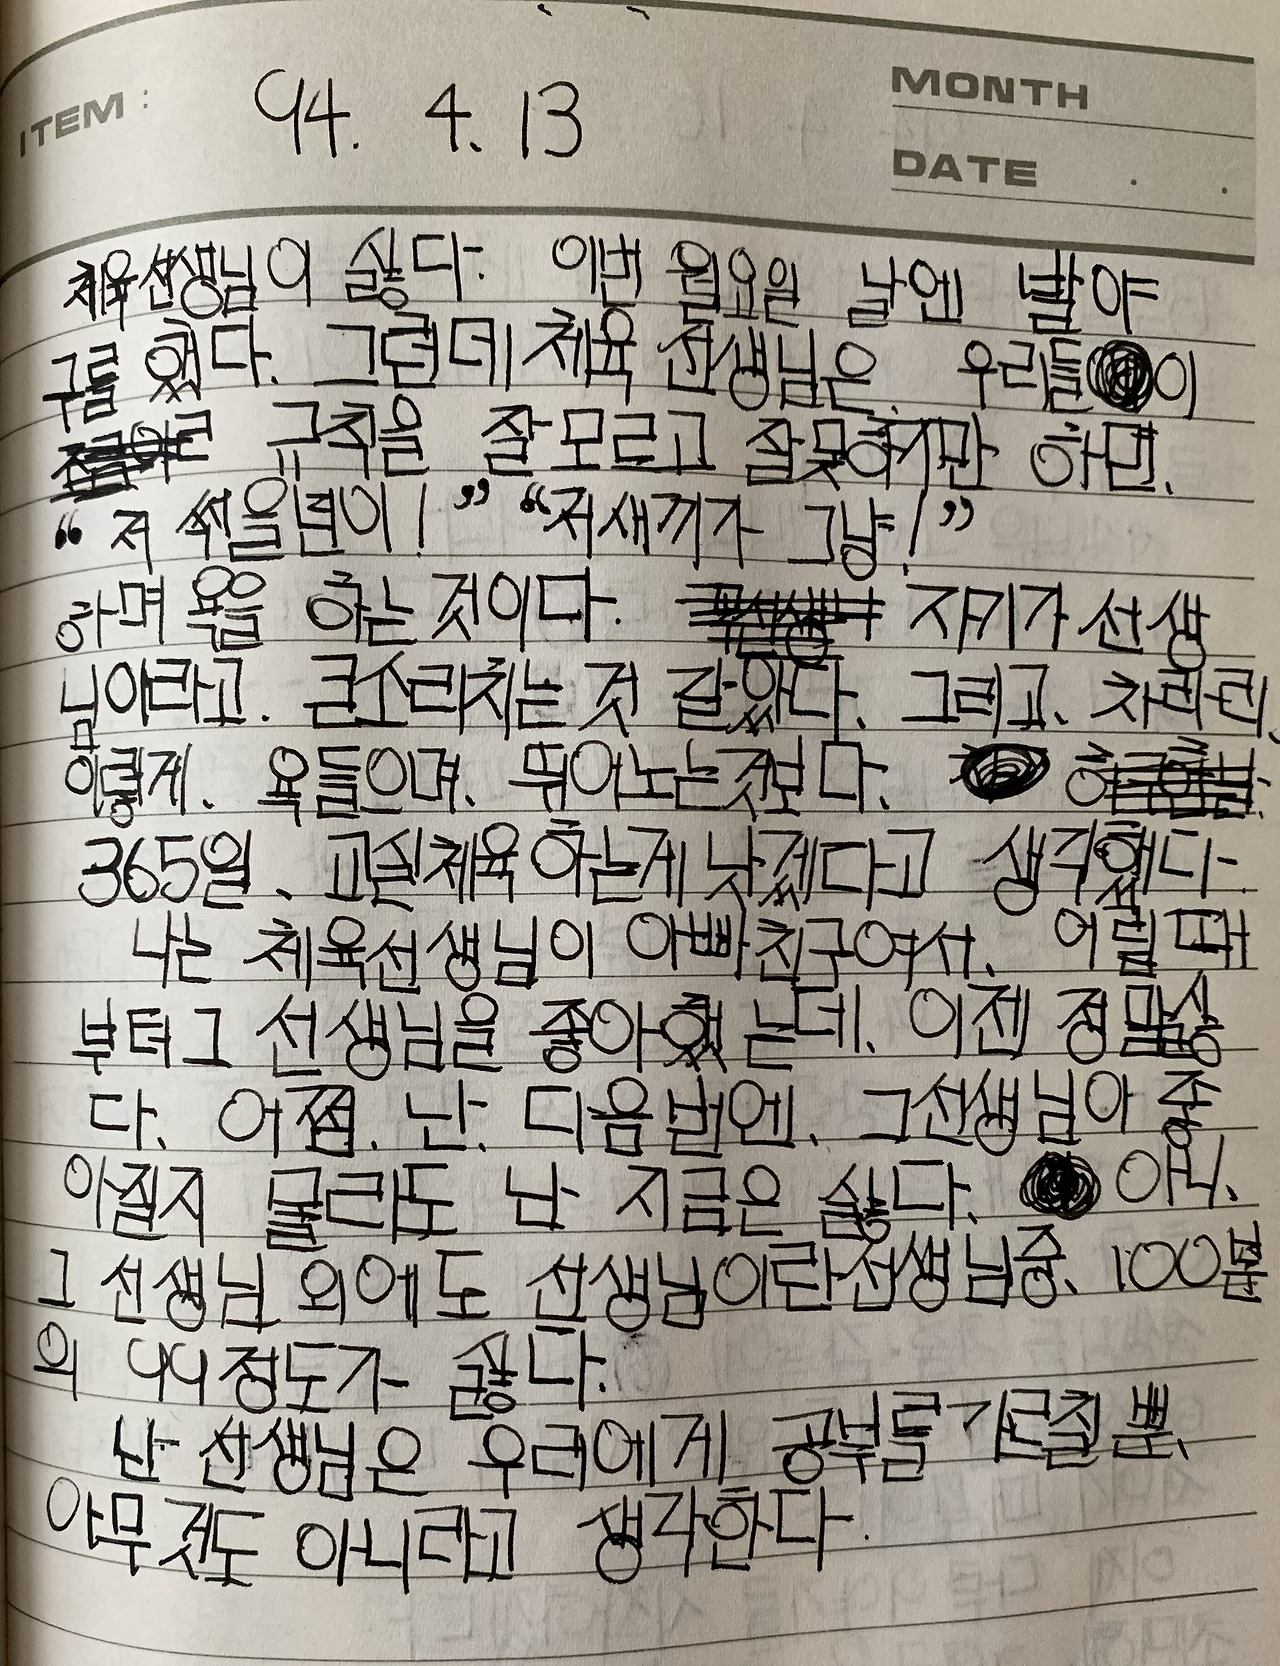 ITEM : 94. 4. 13 MONTH
DATE . .
체육선생님이 싫다. 이번 월요일 날엔 발야
구를 했다. 그런데 체육 선생님은. 우리들이
규칙을 잘 모르고 잘못하기만 하면.
“저 썩을년이!” “저새끼가 그냥!”
하며 욕을 하는 것이다. 자기가 선생
님이라고. 큰소리치는 것 같았다. 그리고. 차라린
이렇게. 욕들으며. 뛰어노는것보다.
365일. 교실체육 하는게 낫겠다고 생각했다.
나는 체육선생님이 아빠친구여서. 어릴때
부터 그 선생님을 좋아했는데. 이젠 정말싫
다. 어쩜. 난. 다음번엔. 그선생님이 좋
아질지 몰라도 난 지금은 싫다. 아니.
그 선생님 외에도 선생님이란선생님중. 100분
의 99정도가 싫다.
난 선생님은 우리에게 공부를 가르칠 뿐.
아무것도 아니라고 생각한다.